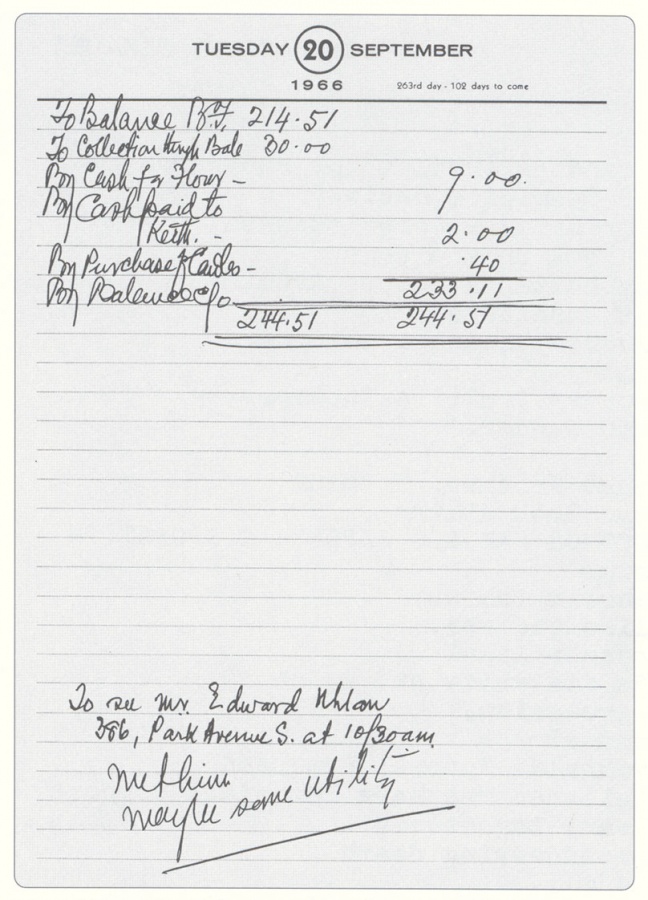 TUESDAY 20 SEPTEMBER
1966 263rd day - 102 days to come
To Balance B.F. 214.51
To Collection through Bale 30.00
By Cash for Flour - 9.00.
By Cash paid to
Keith. - 2.00
By Purchase of Candles - .40
By Balance c/o 233.11
244.51 244.51
To see Mr. Edward
386, Park Avenue S. at 10/30am
met him
maybe some utility